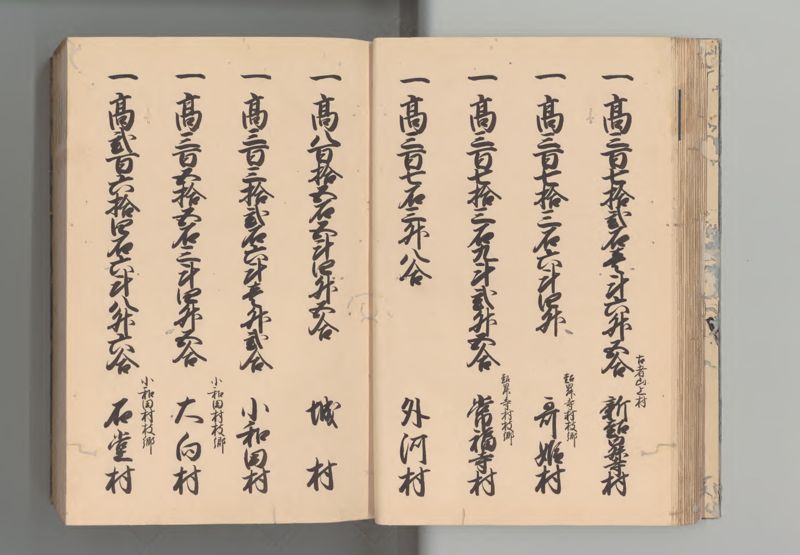 一 高三百七拾弐石壱斗六升五合 古者山上村 新超昇寺村
一 高三百七拾三石六斗四升 超昇寺村枝郷 哥姫村
一 高三百七拾三石九斗弐升五合 超昇寺村枝郷 常福寺村
一 高三百七石三升八合 外河村
一 高八百拾五石五斗四升五合 城村
一 高三百三拾弐石六斗壱升弐合 小和田村
一 高三百五拾五石三斗四升五合 小和田村枝郷 大向村
一 高弐百六拾四石六斗八升六合 小和田村枝郷 石堂村